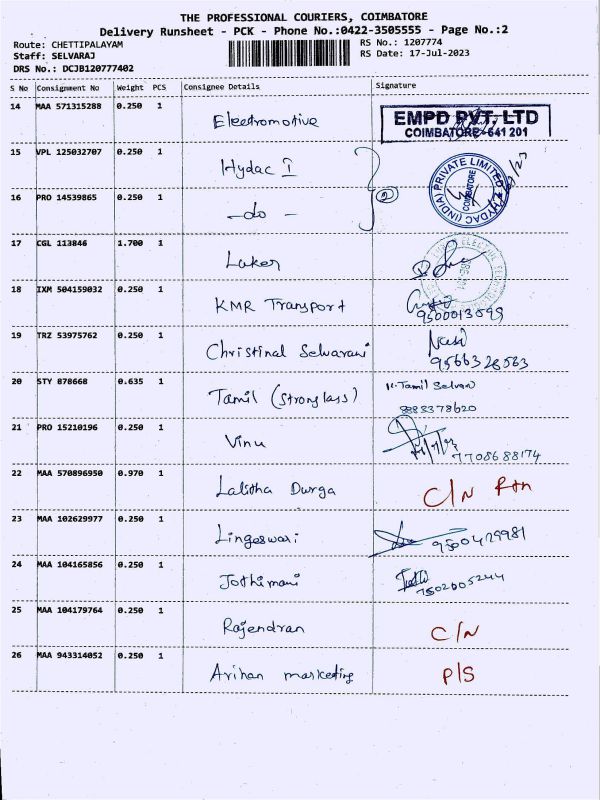 THE PROFESSIONAL COURIERS, COIMBATORE
Delivery Runsheet - PCK - Phone No.:0422-3505555 - Page No.:2
Route: CHETTIPALAYAM RS No.: 1207774
Staff: SELVARAJ RS Date: 17-Jul-2023
DRS No.: DCJB120777402
S No Consignment No Weight PCS Consignee Details Signature
14 MAA 571315288 0.250 1 Electromotive
EMPD PVT. LTD
COIMBATORE-641 201
15 VPL 125032707 0.250 1 Hydac I
HYDAC (INDIA) PRIVATE LIMITED
COIMBATORE
16 PRO 14539865 0.250 1 -do-
2
17 CGL 113846 1.700 1 Laker
18 IXM 504159032 0.250 1 KMR Transport
19 TRZ 53975762 0.250 1 Christinal Selvarani
9566328563
20 STY 878668 0.635 1 Tamil (Stronglass)
Tamil Selvan
8883378620
21 PRO 15210196 0.250 1 Vinu
7708688174
22 MAA 570896950 0.970 1 Lalitha Durga C/N Rtn
23 MAA 102629977 0.250 1 Lingeswari
9500429981
24 MAA 104165856 0.250 1 Jothimani
7502005244
25 MAA 104179764 0.250 1 Rajendran C/N
26 MAA 943314052 0.250 1 Arihan marketing P/S